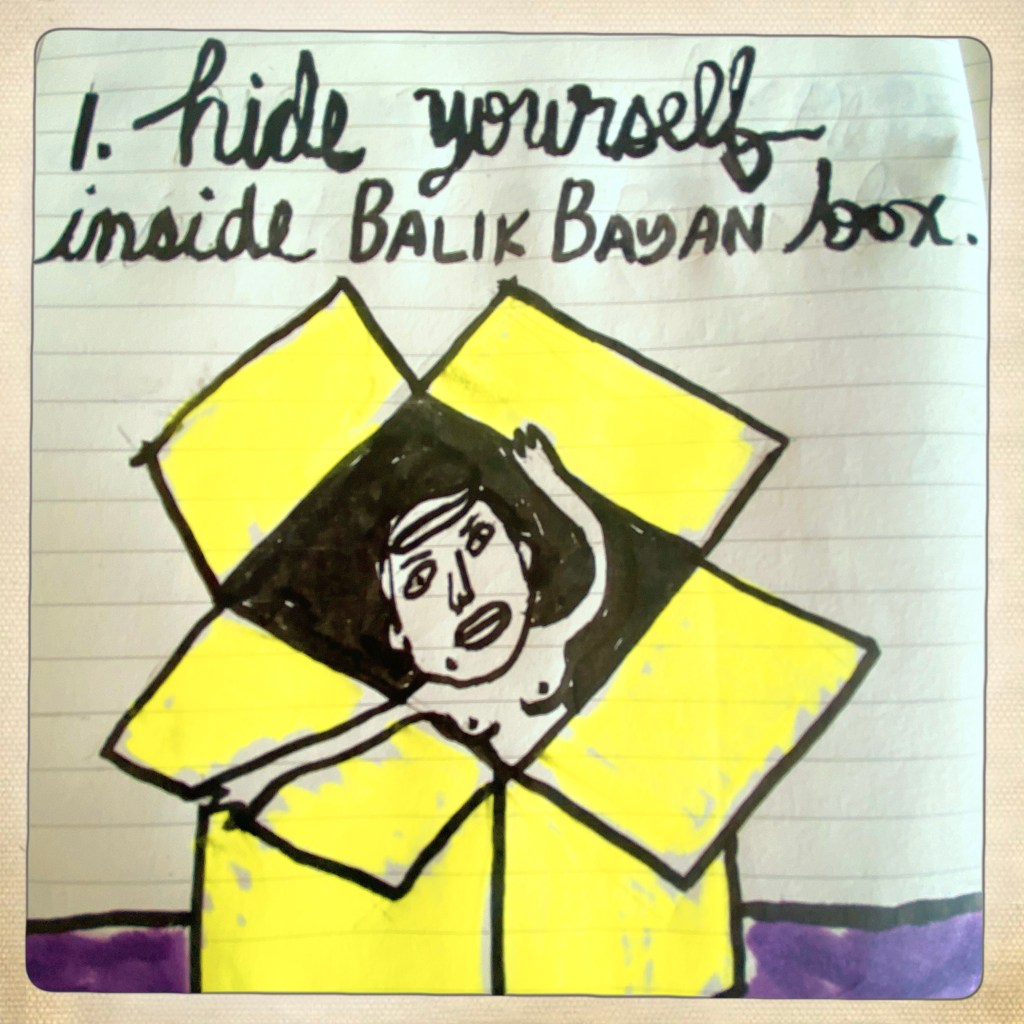 1. hide yourself
inside BALIK BAYAN box.